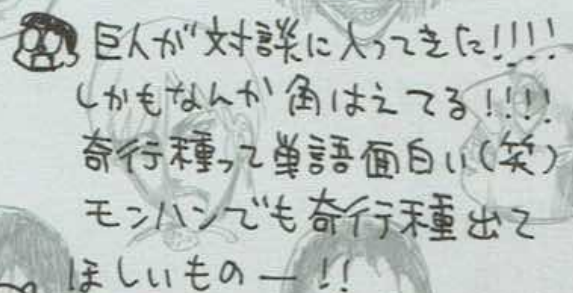 巨人が対談に入ってきた!!!!
しかもなんか角はえてる!!!!
奇行種って単語面白い(笑)
モンハンでも奇行種出て
ほしいものー!!